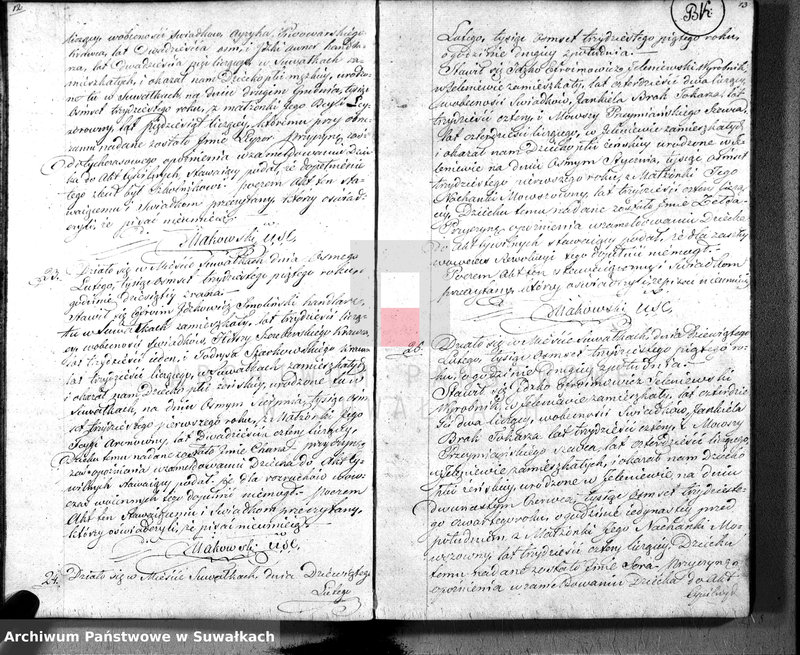 12
liczący, w obecności świadków, Ayzyka
krawca, lat Dwadzieścia osm, i Jcki
na, lat Dwadzieścia pięć liczących w Suwałkach za-
mieszkałych, i okazał nam Dziecko płci męzkiej, urodzo-
ne tu w Suwałkach na dniu drugim Grudnia, tysiąc
osmset trzydziestego roku, z małżonki Jego
lat pięćdziesiąt liczącej, któremu przy obrze-
zaniu nadane zostało Imie
dotychczasowego opóźnienia w zameldowaniu dziec-
ka do Akt cywilnych, Stawaiący podał, że dopełnienie
tego zlecił był Szkolnikowi. poczem Akt ten sta-
waiącemu i świadkom przeczytany, którzy oświad-
czyli, że pisać nieumieią.
Makowski USC.
23. Działo się w Mieście Suwałkach dnia Osmego
Lutego, tysiąc osmset trzydziestego piątego roku o
godzinie dziesiątey z rana.
Stawił się Joskowicz Smoliński handlarz,
tu w Suwałkach zamieszkały, lat trzydzieści liczą-
cy, w obecności świadków, krawca,
lat trzydzieści ieden, i Szarkowskiego krawca
lat trzydzieści liczącego, w Suwałkach zamieszkałych
i okazał nam Dziecko płci żeńskiej, urodzone tu w
Suwałkach, na dniu Osmym Sierpnia, tysiąc osm-
set trzydziestego pierwszego roku, z Małżonki Jego
Aronowny, lat Dwadzieścia cztery liczącey,
Dziecku temu nadane zostało Imie Chana. przyczyn-
na opóźnienia w zameldowaniu Dziecka do Akt cy-
wilnych Stawaiący podał, że dla rozruchów ów-
czas woiennych tego dopełnić niemogł. Poczem
Akt ten Stawaiącemu i Świadkom przeczytany,
którzy oświadczyli, że pisać nieumieią.
Makowski USC.
24. Działo się w Mieście Suwałkach, dnia Dziewiątego
Lutego
13
BK
Lutego, tysiąc osmset trzydziestego piątego roku,
o godzinie drugiey z południa.
Stawił się Jeleniewski Wyrobnik,
w Jeleniewie zamieszkały, lat czterdzieści dwa liczący,
w obecności Świadków, Jankiela Brok Tokarza, lat
trzydzieści cztery, i Mowszy Przymiańskiego Szewca,
lat czterdzieści liczącego, w Jeleniewie zamieszkałych,
i okazał nam Dziecko płci żeńskiej urodzone w Je-
leniewie na dniu Osmym Stycznia, tysiąc osmset
trzydziestego pierwszego roku, z Małżonki Jego
Nechamki Mowszowny, lat trzydzieści cztery liczą-
cey, Dziecku temu nadane zostało Imie
Przyczynę opóźnienia w zameldowaniu Dziecka
do Akt cywilnych stawaiący podał, że dla zaszłey
wówczas Rewolucyi tego dopełnić niemogł.
Poczem Akt ten stawaiącemu i Świadkom
przeczytany, którzy oświadczyli że pisać nieumieią
Makowski USC.
Działo się w Mieście Suwałkach, dnia Dziewiątego
Lutego, tysiąc osmset trzydziestego piątego ro-
ku, o godzinie drugiey z południa.
Stawił się Jeleniewski
Wyrobnik, w Jeleniewie zamieszkały, lat czterdzie-
ści dwa liczący, w obecności Świadków Jankiela
Brok Tokarza lat trzydzieści cztery, i Mowszy
Przymiańskiego Szewca, lat czterdzieści liczącego,
w Jeleniewie zamieszkałych, i okazał nam Dziecko
płci żeńskiej, urodzone w Jeleniewie, na dniu
dwunastym Czerwca, tysiąc osmset trzydzieste-
go czwartego roku, o godzinie iedynastey przed
południem, z Małżonki Jego Nechamki Mo-
wszowny, lat trzydzieści cztery liczącey, Dziecku
temu nadane zostało Imie Sora. Przyczyna
opóźnienia w zameldowaniu Dziecka do Akt
Archiwum Państwowe w Suwałkach